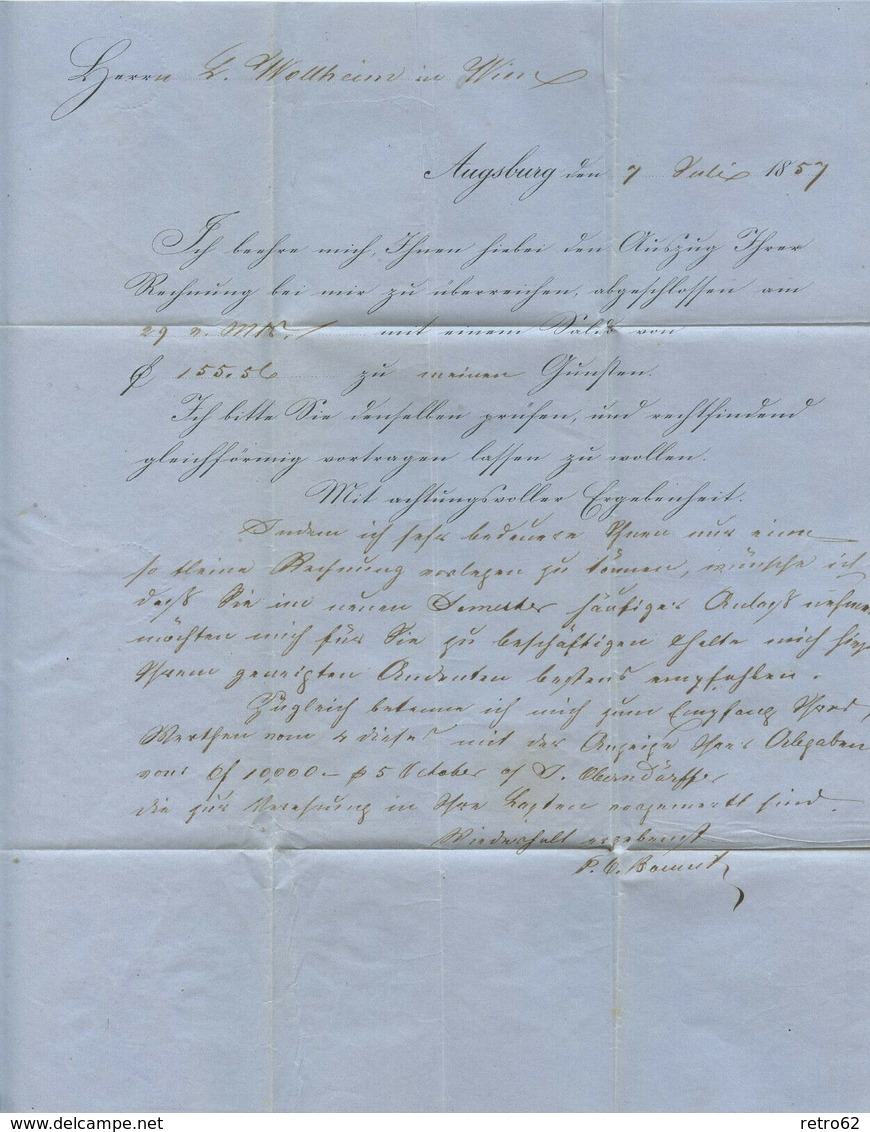 Herrn L. Wollheim in Wien
Augsburg den 7 Juli 1857
Ich beehre mich, Ihnen hiebei den Auszug Ihrer
Rechnung bei mir zu überreichen, abgeschlossen am
29 v. Mts. mit einem Saldo von
f 155.56 zu meinen Gunsten.
Ich bitte Sie denselben prüfen, und rechtfindend
gleichförmig vortragen lassen zu wollen.
Mit achtungsvoller Ergebenheit.
Indem ich sehr bedauere Ihnen nur eine
so kleine Rechnung vorlegen zu können, wünsche ich
daß Sie im neuen Semester häufiger Anlaß nehmen
möchten mich für Sie zu beschäftigen & halte mich
Ihrem geneigten Andenken bestens empfohlen.
Zugleich bekenne ich mich zum Empfang Ihres
Werthen vom 4 dieses mit der Anzeige Ihrer Abgaben
von 10,000 – 5 October Oberndörffer
die zur in Ihre Lasten vorgemerkt sind.
Wiederholt ergebenst
delcampe.net
retro62